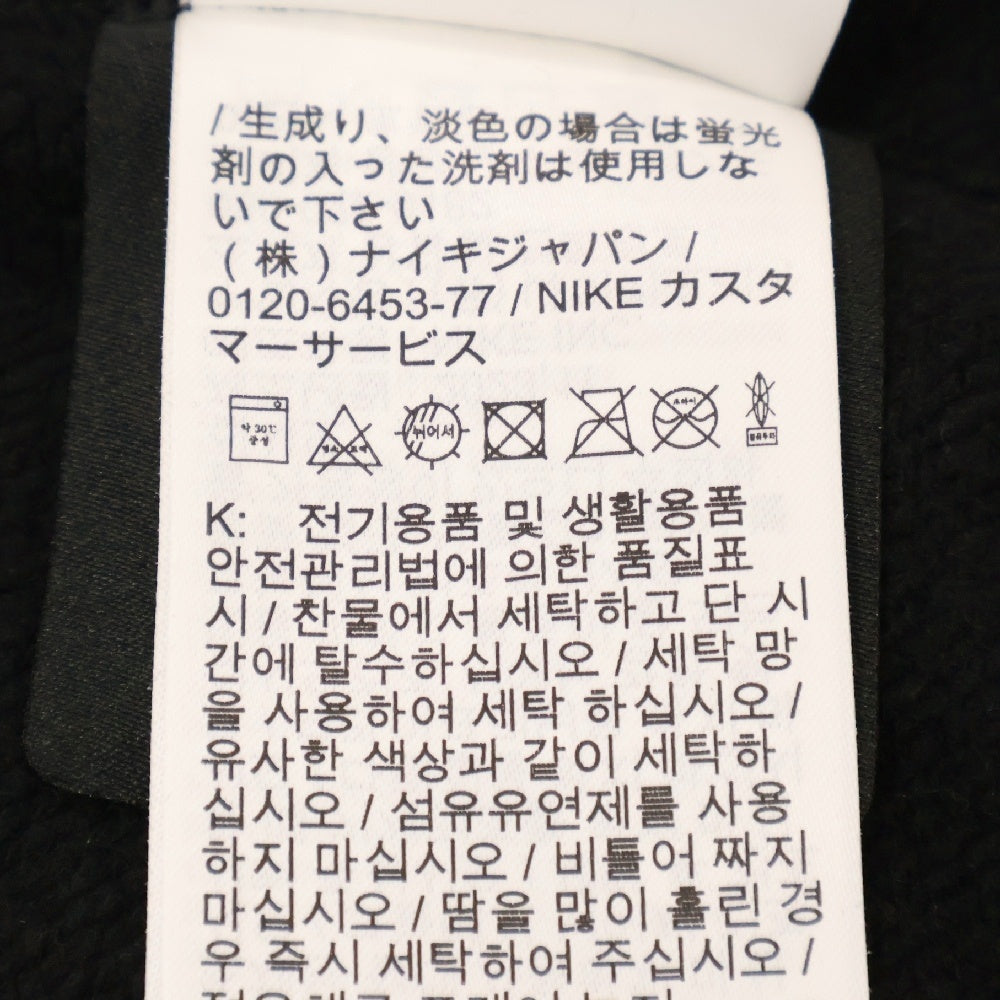 / 生成り、淡色の場合は蛍光
剤の入った洗剤は使用しな
いで下さい
(株)ナイキジャパン /
0120-6453-77 / NIKE カスタ
マーサービス
약 30℃
중성
뉘어서
K: 전기용품 및 생활용품
안전관리법에 의한 품질표
시 / 찬물에서 세탁하고 단 시
간에 탈수하십시오 / 세탁 망
을 사용하여 세탁 하십시오 /
유사한 색상과 같이 세탁하
십시오 / 섬유유연제를 사용
하지 마십시오 / 비틀어 짜지
마십시오 / 땀을 많이 흘린 경
우 즉시 세탁하여 주십시오 /